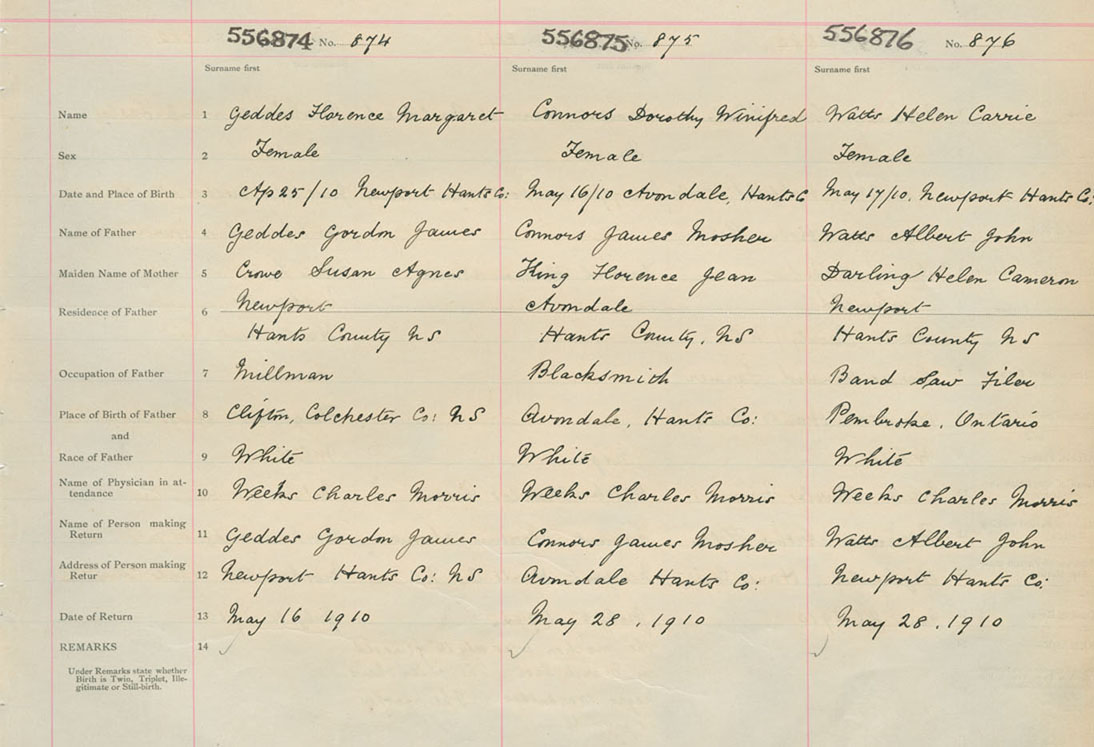 556874 No. 874 556875 No. 875 556876 No. 876
Surname first Surname first Surname first
Name 1 Geddes Florence Margaret Connors Dorothy Winifred Watts Helen Carrie
Sex 2 Female Female Female
Date and Place of Birth 3 Ap 25/10 Newport Hants Co: May 16/10 Avondale, Hants C May 17/10. Newport Hants Co:
Name of Father 4 Geddes Gordon James Connors James Mosher Watts Albert John
Maiden Name of Mother 5 Crowe Susan Agnes King Florence Jean Darling Helen Cameron
Residence of Father 6 Newport Avondale Newport
Hants County NS Hants County, NS Hants County NS
Occupation of Father 7 Millman Blacksmith Band Saw Filer
Place of Birth of Father 8 Clifton, Colchester Co: NS Avondale, Hants Co: Pembroke, Ontario
and
Race of Father 9 White White White
Name of Physician in at-
tendance 10 Weeks Charles Morris Weeks Charles Morris Weeks Charles Morris
Name of Person making
Return 11 Geddes Gordon James Connors James Mosher Watts Albert John
Address of Person making
Retur 12 Newport Hants Co: NS Avondale Hants Co: Newport Hants Co:
Date of Return 13 May 16 1910 May 28, 1910 May 28, 1910
REMARKS 14
Under Remarks state whether
Birth is Twin, Triplet, Ille-
gitimate or Still-birth.